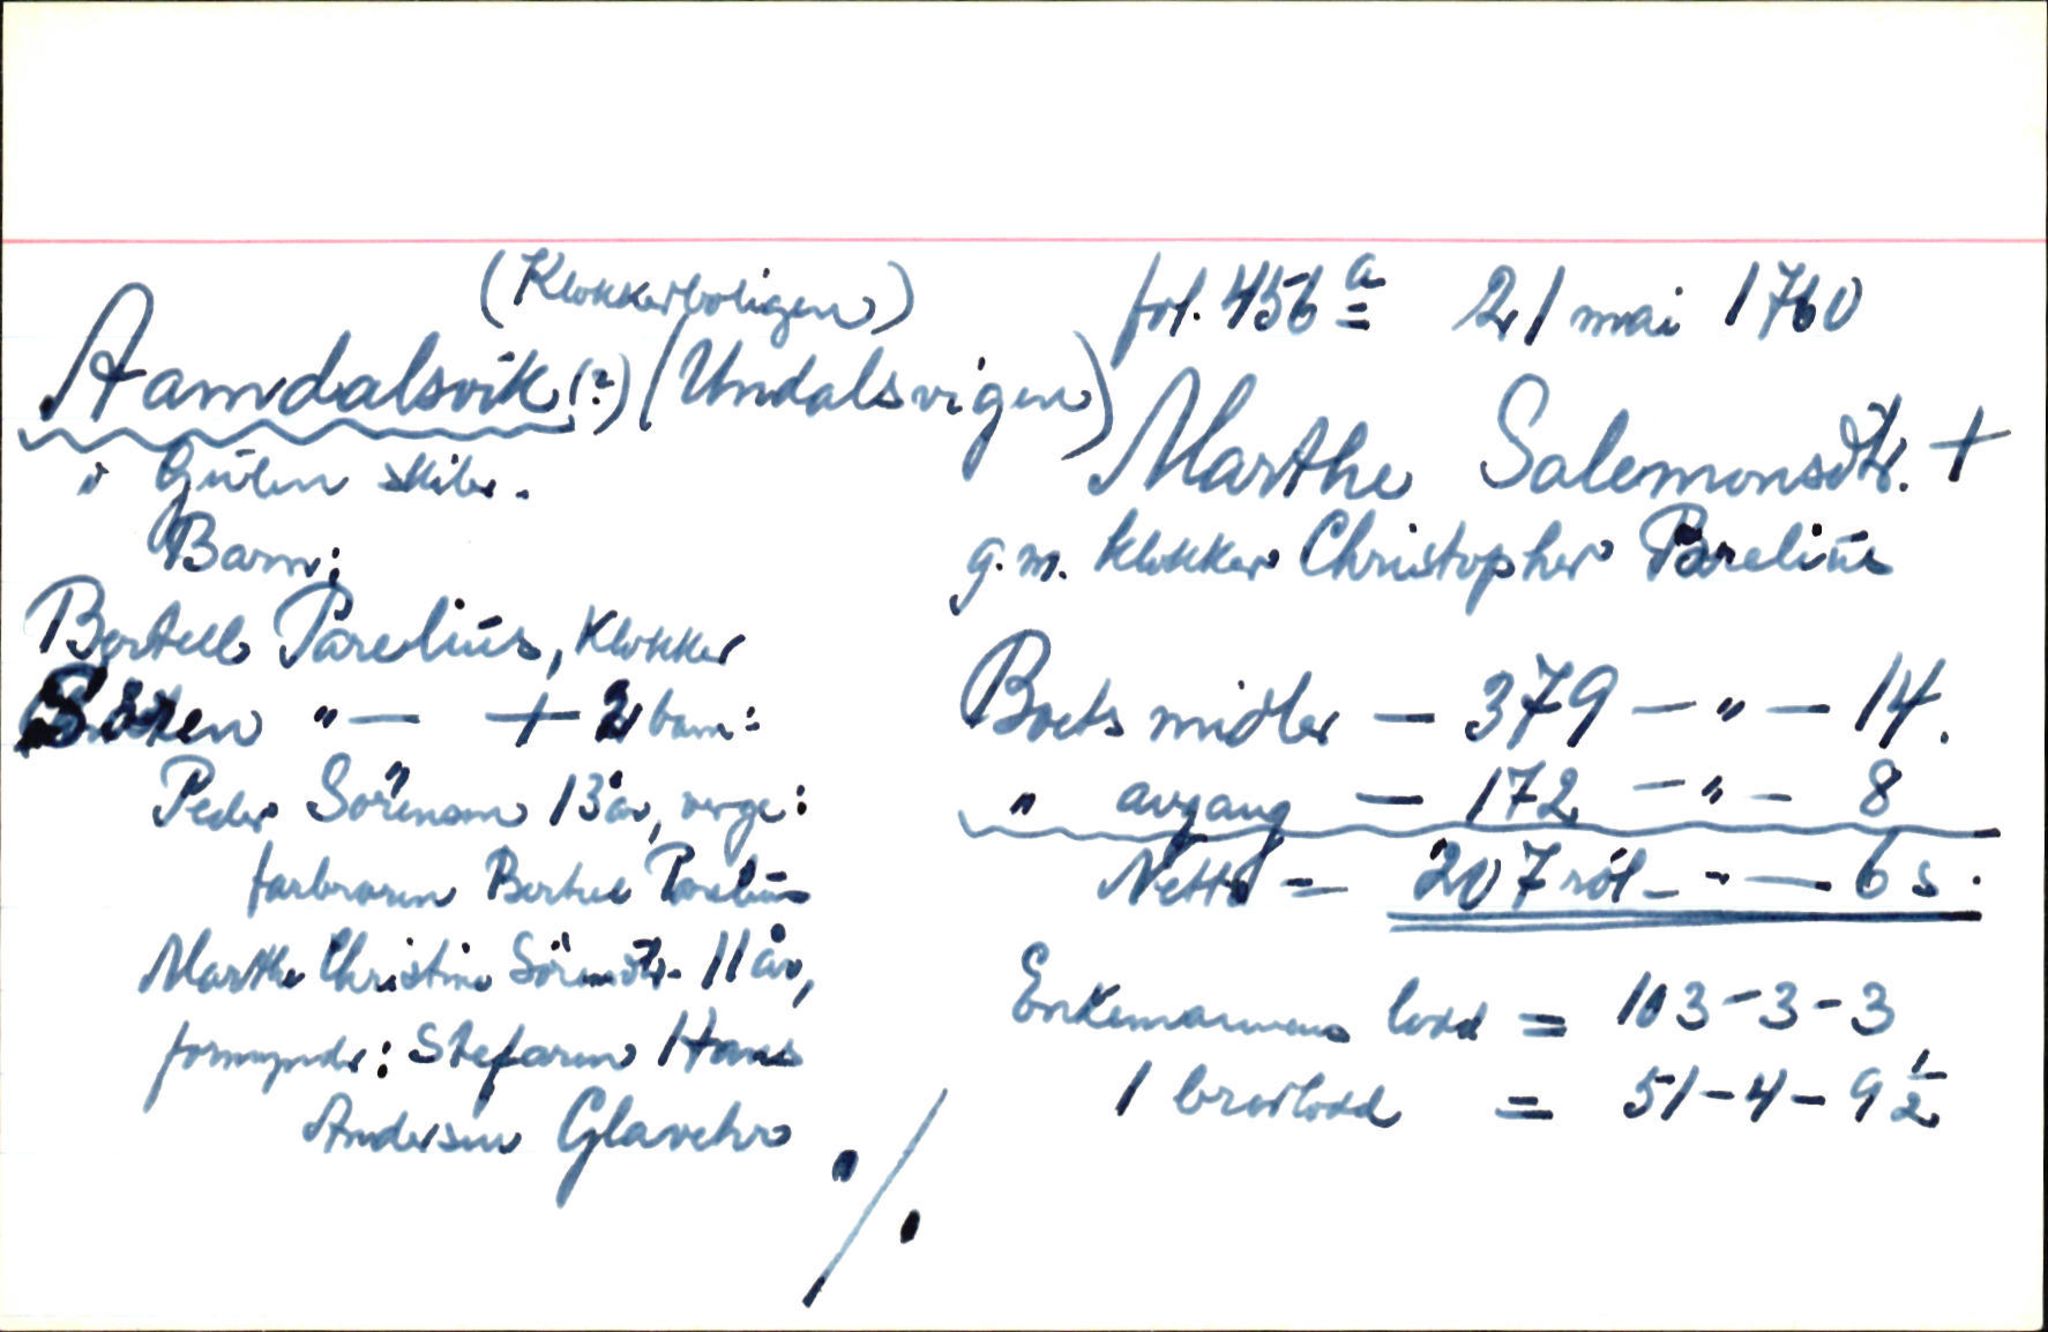 (Klokkerboligen)
Aamdalsvik (?) (Undalsvigen)
i Gulen skibr.
Barn:
Bertell Parelius, klokker
Sören "— + 2 barn:
Peder Sörensen 13 år, verge:
farbroren Bertel Parelius
Marthe Christine Sörensdtr. 11 år,
formynder: Stefaren Hans
Andersen Glavehr
fol. 456 a 21 mai 1760
Marthe Salemonsdtr. +
g. m. klokker Christopher Parelius
Boets midler — 379 — " — 14.
" avgang — 172 — " — 8
Netto = 207 rdl — " — 6 s.
Enkemannens lodd = 103 - 3 - 3
1 brorlodd = 51 - 4 - 9 ½
./.